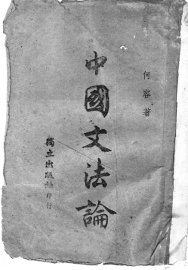 何容著
中國文法論
獨立出版社印行